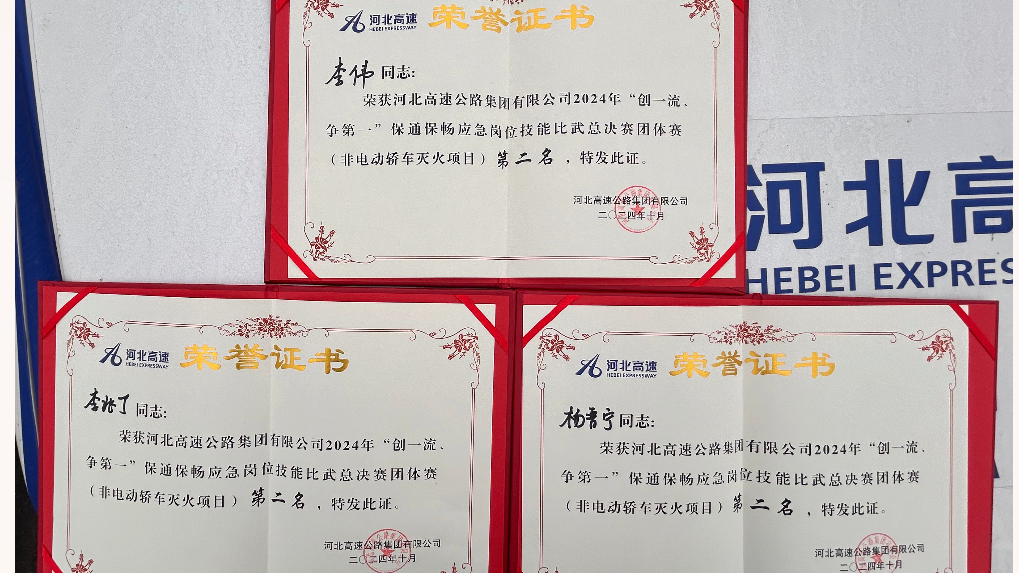 河北高速
HEBEI EXPRESSWAY
荣誉证书
李伟 同志:
荣获河北高速公路集团有限公司2024年“创一流、
争第一”保通保畅应急岗位技能比武总决赛团体赛
（非电动轿车灭火项目）第二名，特发此证。
河北高速公路集团有限公司
二〇二四年十月
河北高
HEBEI EXPRES
河北高速
HEBEI EXPRESSWAY
荣誉证书
李兆丁 同志:
荣获河北高速公路集团有限公司2024年“创一流、
争第一”保通保畅应急岗位技能比武总决赛团体赛
（非电动轿车灭火项目）第二名，特发此证。
河北高速公路集团有限公司
二〇二四年十月
河北高速
HEBEI EXPRESSWAY
荣誉证书
杨晋宁 同志:
荣获河北高速公路集团有限公司2024年“创一流、
争第一”保通保畅应急岗位技能比武总决赛团体赛
（非电动轿车灭火项目）第二名，特发此证。
河北高速公路集团有限公司
二〇二四年十月